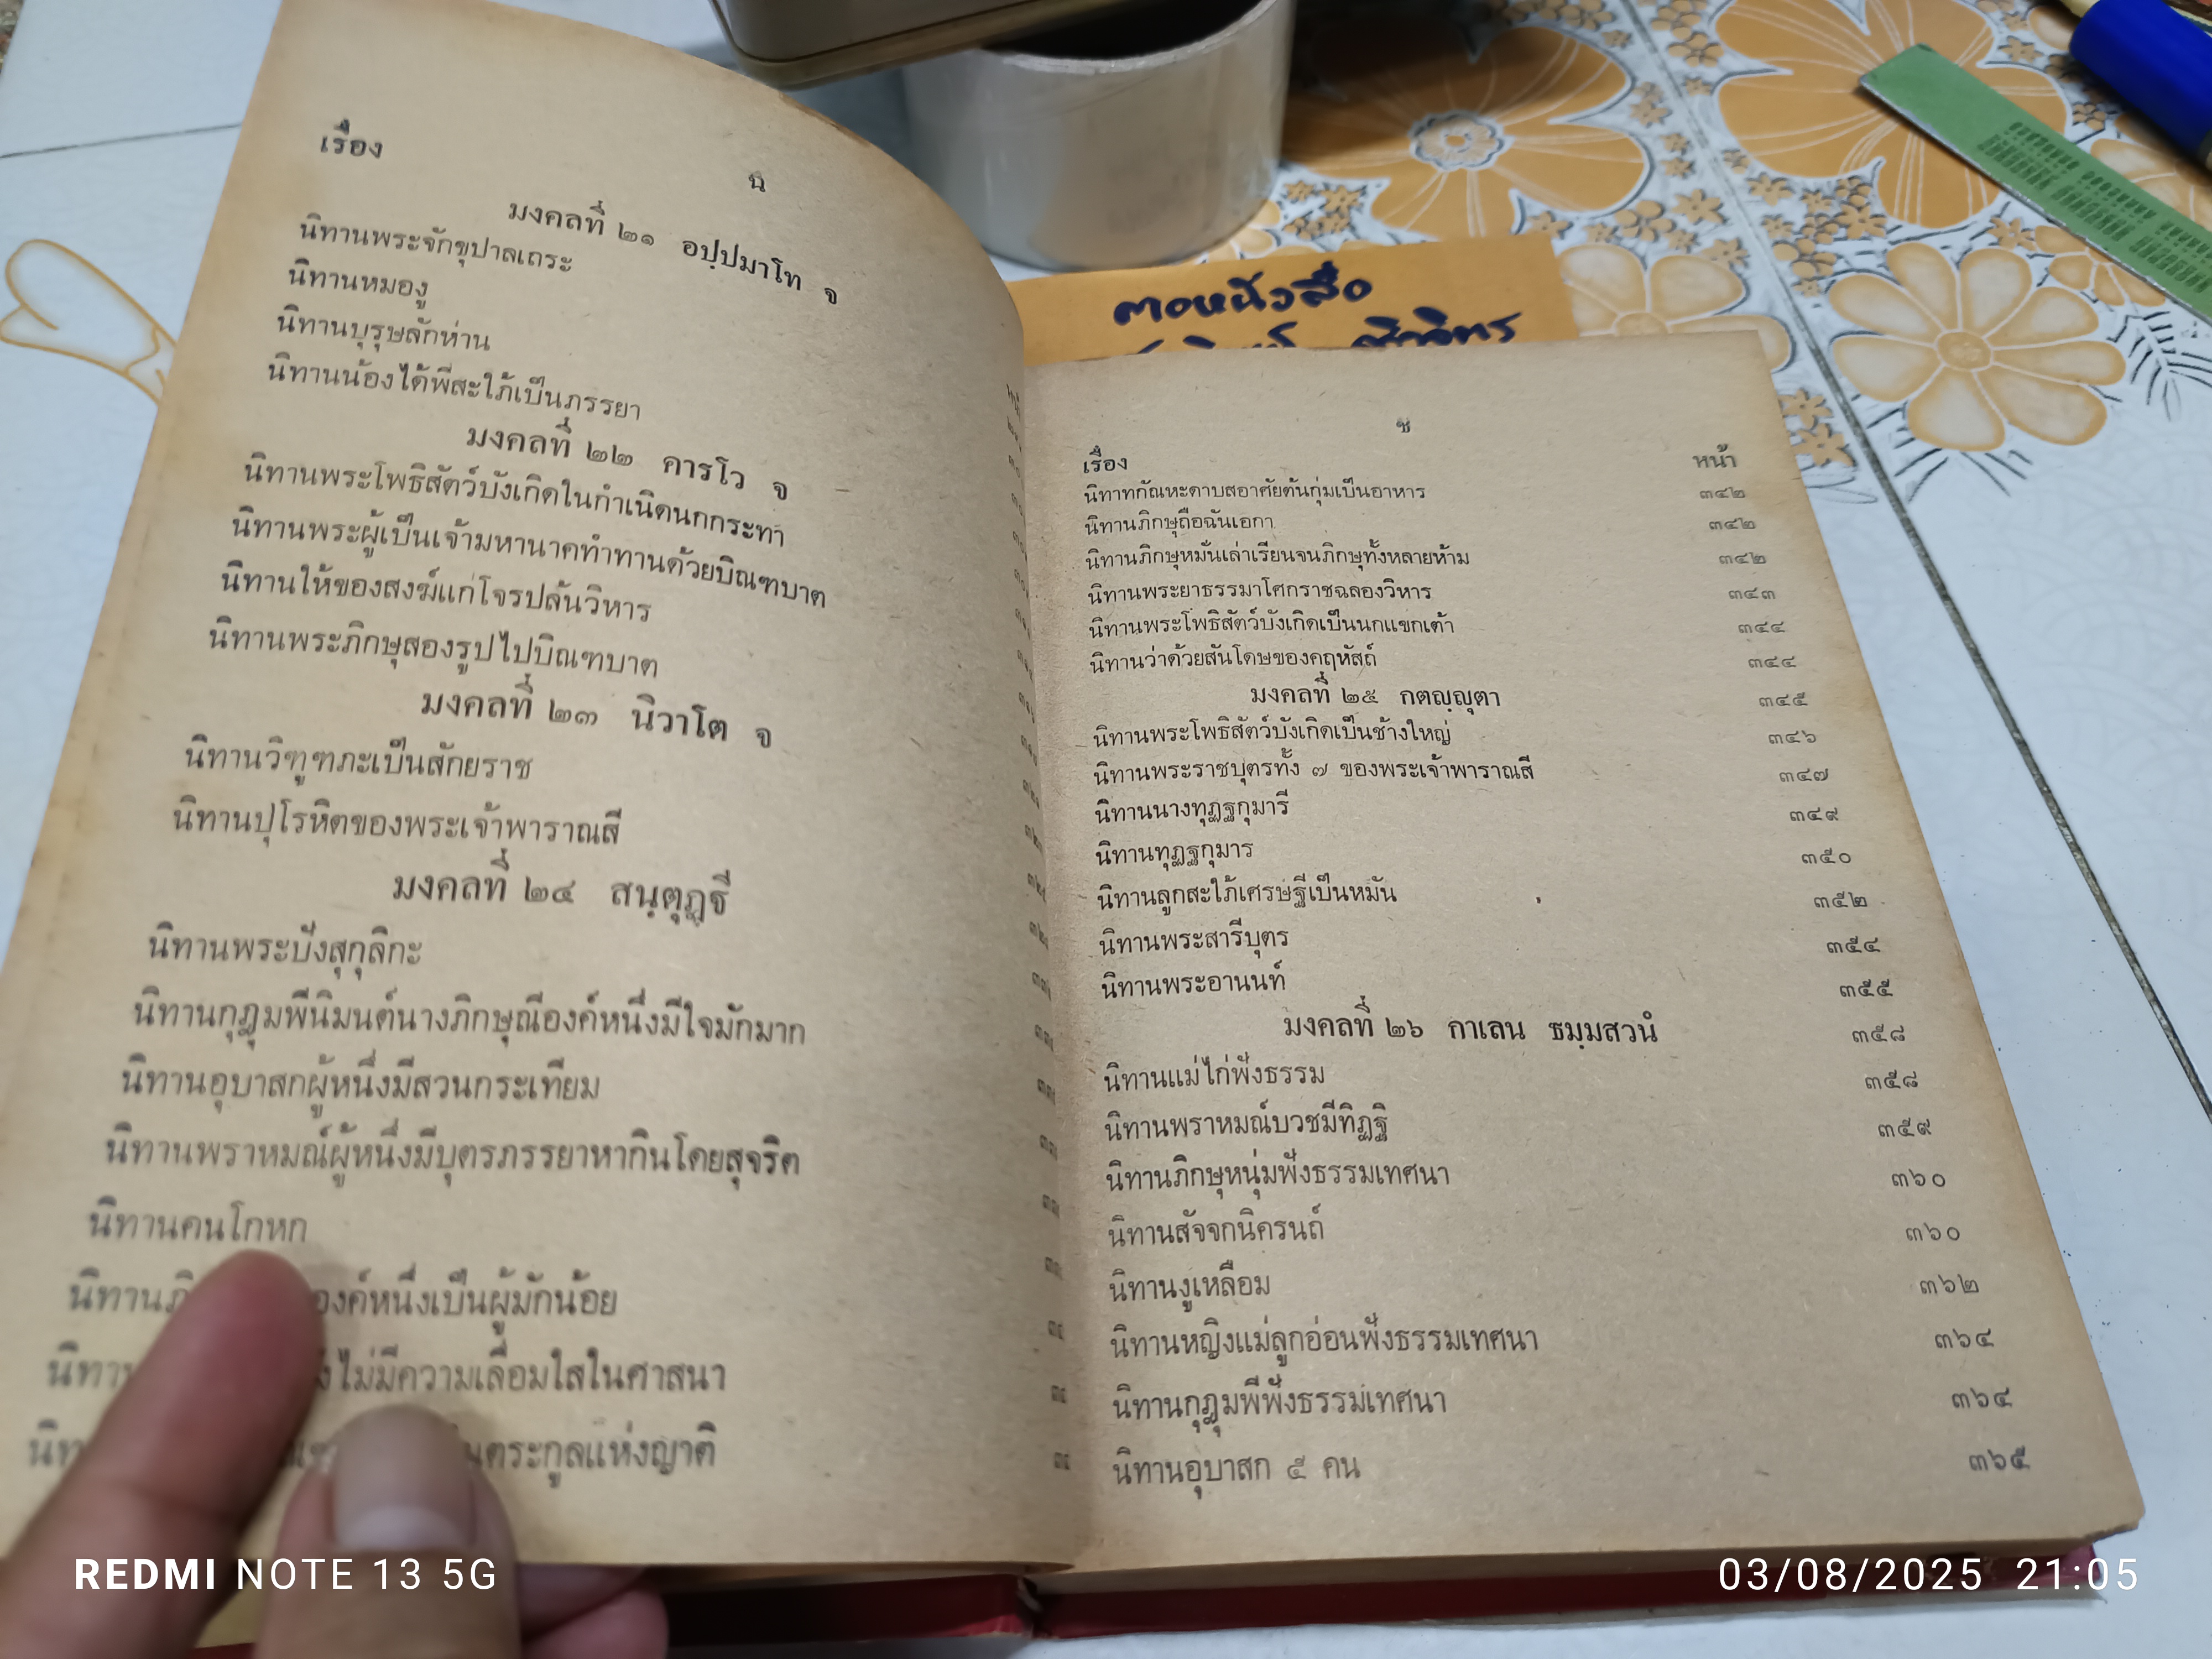 เรื่อง
ฉ
มงคลที่ ๒๑ อปฺปมาโท จ
นิทานพระจักขุปาลเถระ
นิทานหมองู
นิทานบุรุษลักห่าน
นิทานน้องได้พี่สะใภ้เป็นภรรยา
มงคลที่ ๒๒ คารโว จ
นิทานพระโพธิสัตว์บังเกิดในกำเนิดนกกระทา
นิทานพระผู้เป็นเจ้ามหานาคทำทานด้วยบิณฑบาต
นิทานให้ของสงฆ์แก่โจรปล้นวิหาร
นิทานพระภิกษุสองรูปไปบิณฑบาต
มงคลที่ ๒๓ นิวาโต จ
นิทานวิฑูฑภะเป็นสักยราช
นิทานปุโรหิตของพระเจ้าพาราณสี
มงคลที่ ๒๔ สนฺตุฏฺฐี
นิทานพระบังสุกุลิกะ
นิทานกุฎุมพีนิมนต์นางภิกษุณีองค์หนึ่งมีใจมักมาก
นิทานอุบาสกผู้หนึ่งมีสวนกระเทียม
นิทานพราหมณ์ผู้หนึ่งมีบุตรภรรยาหากินโดยสุจริต
นิทานคนโกหก
องค์หนึ่งเป็นผู้มักน้อย
ไม่มีความเลื่อมใสในศาสนา
ตระกูลแห่งญาติ
ช
เรื่อง หน้า
นิทาทกัณหะดาบสอาศัยต้นกุ่มเป็นอาหาร ๓๔๒
นิทานภิกษุถือฉันเอกา ๓๔๒
นิทานภิกษุหมั่นเล่าเรียนจนภิกษุทั้งหลายห้าม ๓๔๒
นิทานพระยาธรรมาโศกราชฉลองวิหาร ๓๔๓
นิทานพระโพธิสัตว์บังเกิดเป็นนกแขกเต้า ๓๔๔
นิทานว่าด้วยสันโดษของคฤหัสถ์ ๓๔๔
มงคลที่ ๒๕ กตญฺญุตา ๓๔๕
นิทานพระโพธิสัตว์บังเกิดเป็นช้างใหญ่ ๓๔๖
นิทานพระราชบุตรทั้ง ๗ ของพระเจ้าพาราณสี ๓๔๗
นิทานนางทุฏฐกุมารี ๓๔๙
นิทานทุฏฐกุมาร ๓๕๐
นิทานลูกสะใภ้เศรษฐีเป็นหมัน ๓๕๒
นิทานพระสารีบุตร ๓๕๔
นิทานพระอานนท์ ๓๕๕
มงคลที่ ๒๖ กาเลน ธมฺมสวนํ ๓๕๘
นิทานแม่ไก่ฟังธรรม ๓๕๘
นิทานพราหมณ์บวชมีทิฏฐิ ๓๕๙
นิทานภิกษุหนุ่มฟังธรรมเทศนา ๓๖๐
นิทานสัจจกนิครนถ์ ๓๖๐
นิทานงูเหลือม ๓๖๒
นิทานหญิงแม่ลูกอ่อนฟังธรรมเทศนา ๓๖๔
นิทานกุฎุมพีฟังธรรมเทศนา ๓๖๔
นิทานอุบาสก ๕ คน ๓๖๕
REDMI NOTE 13 5G
03/08/2025 21:05